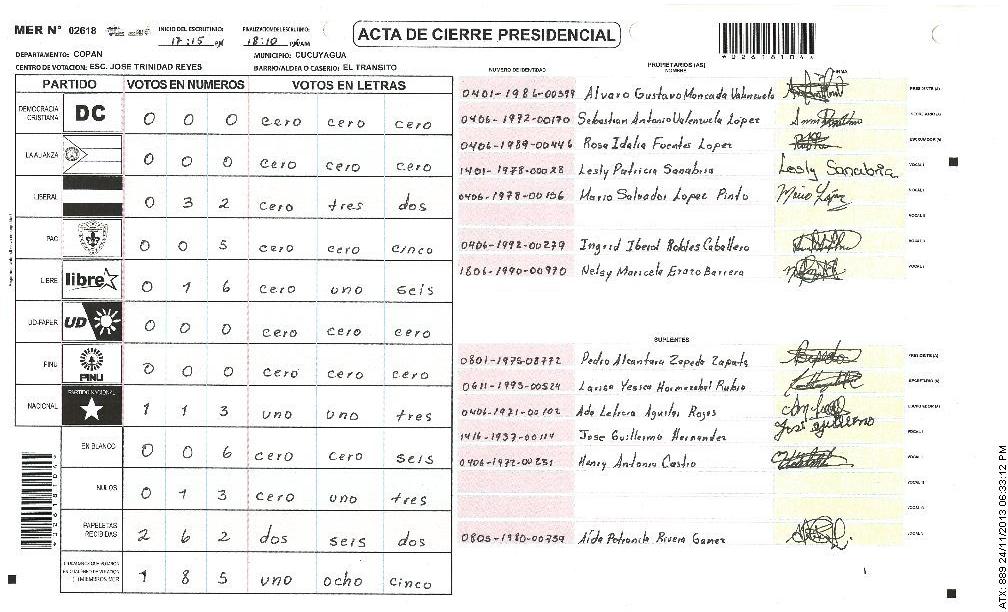 MER N° 02618
INICIO DEL ESCRUTINIO: 17:15
FINALIZACION DEL ESCRUTINIO: 18:10
ACTA DE CIERRE PRESIDENCIAL
DEPARTAMENTO: COPAN
MUNICIPIO: CUCUYAGUA
CENTRO DE VOTACION: ESC. JOSE TRINIDAD REYES
BARRIO/ALDEA O CASERIO: EL TRANSITO
PARTIDO VOTOS EN NUMEROS VOTOS EN LETRAS
DEMOCRACIA CRISTIANA DC 0 0 0 cero cero cero
LA ALIANZA 0 0 0 cero cero cero
LIBERAL 0 3 2 cero tres dos
PAC 0 0 5 cero cero cinco
LIBRE libre 0 1 6 cero uno seis
UD-FAPER UD 0 0 0 cero cero cero
PINU PINU 0 0 0 cero cero cero
NACIONAL PARTIDO NACIONAL 1 1 3 uno uno tres
EN BLANCO 0 0 6 cero cero seis
NULOS 0 1 3 cero uno tres
PAPELETAS RECIBIDAS 2 6 2 dos seis dos
1 8 5 uno ocho cinco
NUMERO DE IDENTIDAD
PROPIETARIOS (AS)
NOMBRE
FIRMA
Alvaro Gustavo Moncada Valenzuela
0406-1972-00170 Sebastian Antonio Valenzuela López
0406-1989-00446 Rosa Idalia Fuentes Lopez
1401-1978-00028 Lesly Patricia Sanabria Lesly Sanabria
0406-1978-00156 Mario Salvador Lopez Pinto
0406-1992-00279 Ingrid Robles Caballero
1806-1990-00970 Nelsy Maricela Erazo Barrera
SUPLENTES
0801-1975-08772 Pedro Alcantara Zepeda Zapata
0611-1993-00524 Larisa Yesica Rubio
0406-1971-00102 Ada Leticia Rojas
Jose Guillermo Hernandez José Guillermo
0406-1972-00251 Henry Antonio Castro
0805-1980-00759 Aida Petronila Rivera Gamez
ATX: 889 24/11/2013 06:33:12 PM